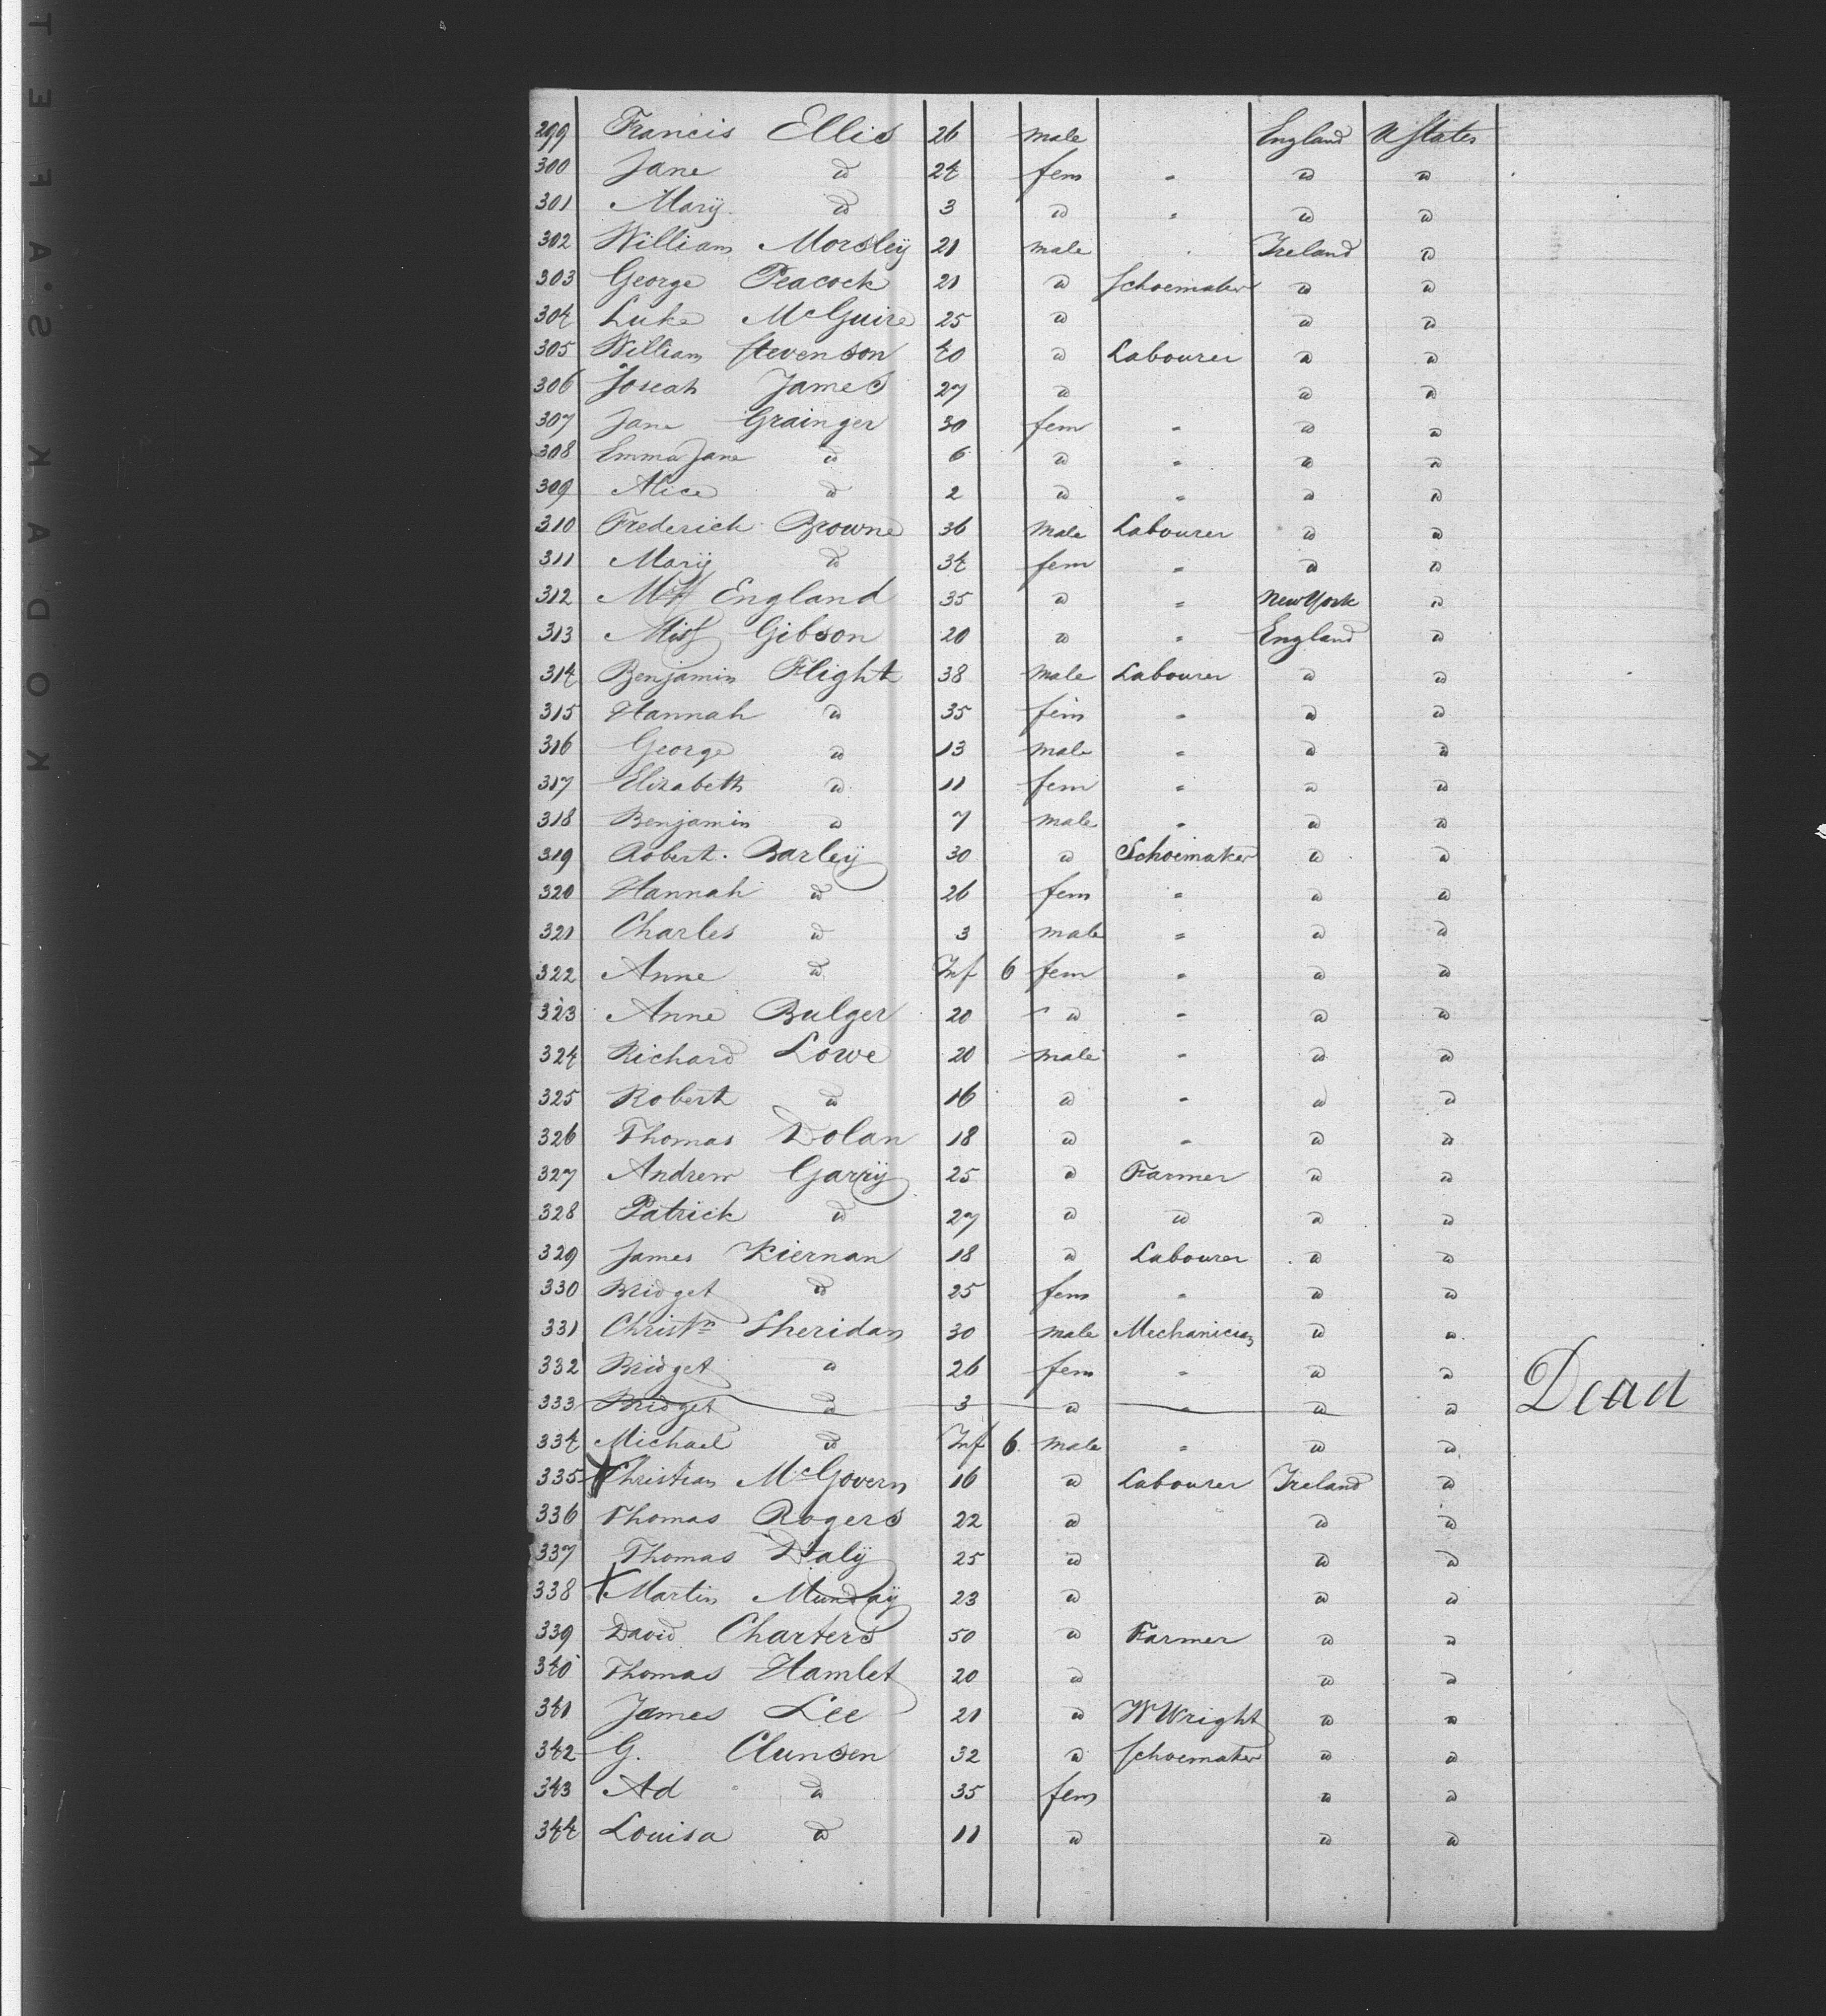 299 Francis Ellis 26 male England U States
300 Jane d 24 fem " d d
301 Mary d 3 d " d d
302 William Morsley 21 male Ireland d
303 George Peacock 21 d Schoemaker d d
304 Luke McGuire 25 d d d
305 William Stevenson 40 d Labourer d d
306 Joseah James 27 d d d
307 Jane Grainger 30 fem " d d
308 Emma Jane d 6 d " d d
309 Alice d 2 d " d d
310 Frederich Browne 36 male Labourer d d
311 Mary d 34 fem " d d
312 England 35 d " New York d
313 Miss Gibson 20 d " England d
314 Benjamin Flight 38 male Labourer d d
315 Hannah d 35 fem " d d
316 George d 13 male " d d
317 Elizabeth d 11 fem " d d
318 Benjamin d 7 male " d d
319 Robert. Barley 30 d Schoemaker d d
320 Hannah d 26 fem " d d
321 Charles d 3 male " d d
322 Anne d Inf 6 fem " d d
323 Anne Bulger 20 d " d d
324 Richard Lowe 20 male " d d
325 Robert d 16 d " d d
326 Thomas Dolan 18 d " d d
327 Andrew Garry 25 d Farmer d d
328 Patrick d 27 d d d d
329 James Kiernan 18 d Labourer d d
330 Bridget d 25 fem " d d
331 Christn Sheridan 30 male Mechanician d d
332 Bridget d 26 fem " d d
333 Bridget d 3 d " d d Dead
334 Michael d Inf 6 male " d d
335 X Christian McGovern 16 d Labourer Ireland d
336 Thomas Rogers 22 d d d
337 Thomas Daly 25 d d d
338 X Martin Munday 23 d d d
339 David Charters 50 d Farmer d d
340 Thomas Hamlet 20 d d d
341 James Lee 21 d W Wright d d
342 G. Clunsen 32 d Schoemaker d d
343 Ad d 35 fem d d
344 Louisa d 11 d d d
KODAK S.AFETY